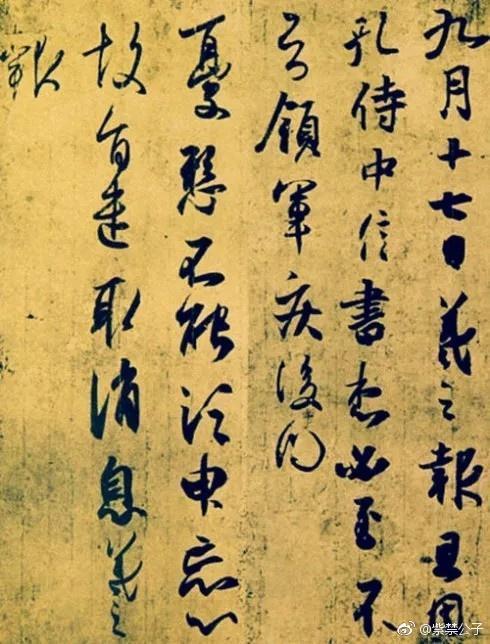 九月十七日羲之報且因
孔侍中信書想必至不
知領軍疾後問
憂懸不能須臾忘心
故旨遣取消息羲之
報
@紫禁公子